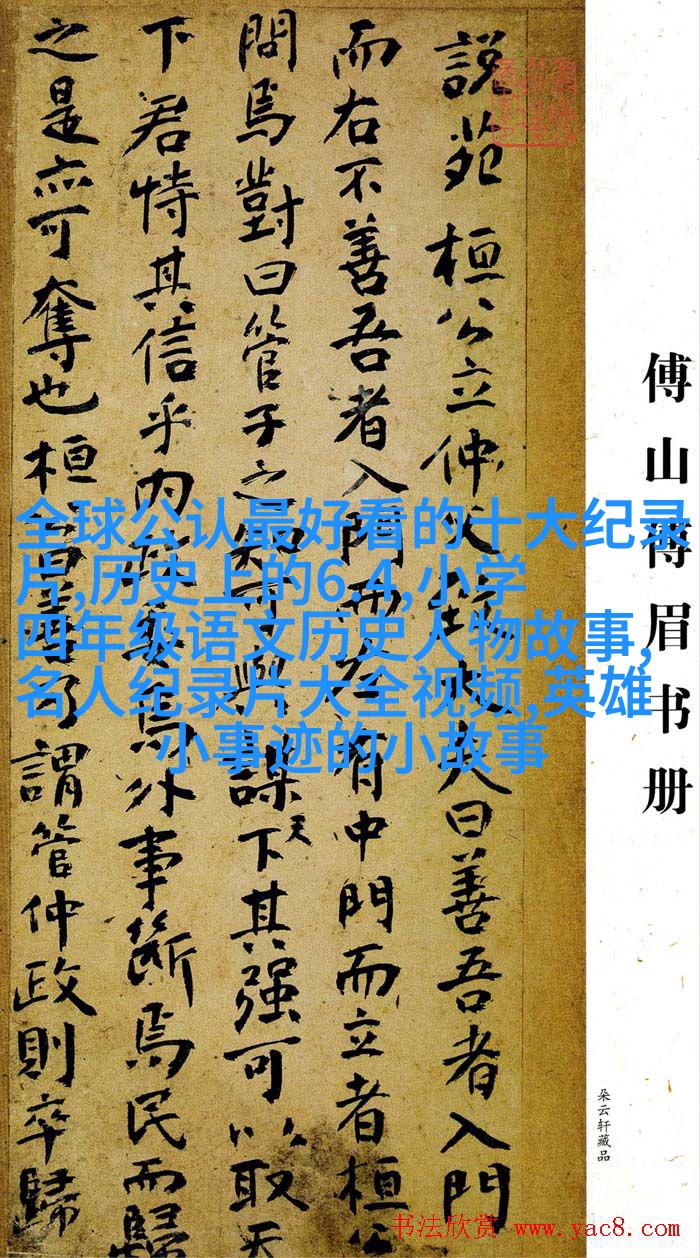 傅山傅眉书册
朵云轩藏品
説苑 桓公立仲父大夫曰善吾者入門
而右不善吾者入門而左有中門而立者桓公
問焉對曰管子之知可與謀天下其强可以取天
下君恃其信乎内政委焉外事斷焉民而歸
之是亦可奪也桓公曰善乃謂管仲政則卒歸
全球公认最好看的十大纪录
片,历史上的6.4,小学
四年级语文历史人物故事,
名人纪录片大全视频,英雄
小事迹的小故事
书法欣赏 www.yac8.com